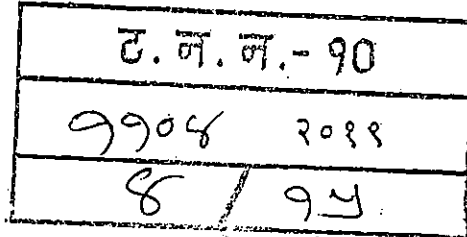 ट. न. न. - १०
११०४ २०११
४ / १५